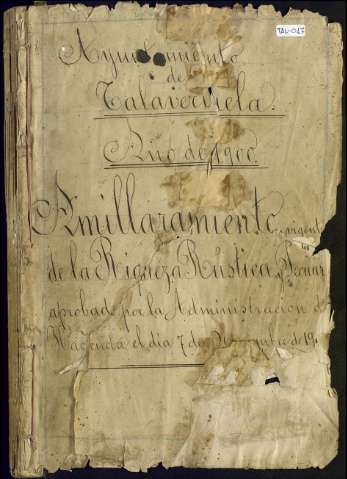 TAL-047
Ayuntamiento
de
Talaveruela.
Año de 1900.
Amillaramiento, vigente
de la Riqueza Rústica y Pecuar
aprobado por la Administracion de
Hacienda el dia 7 de de 19